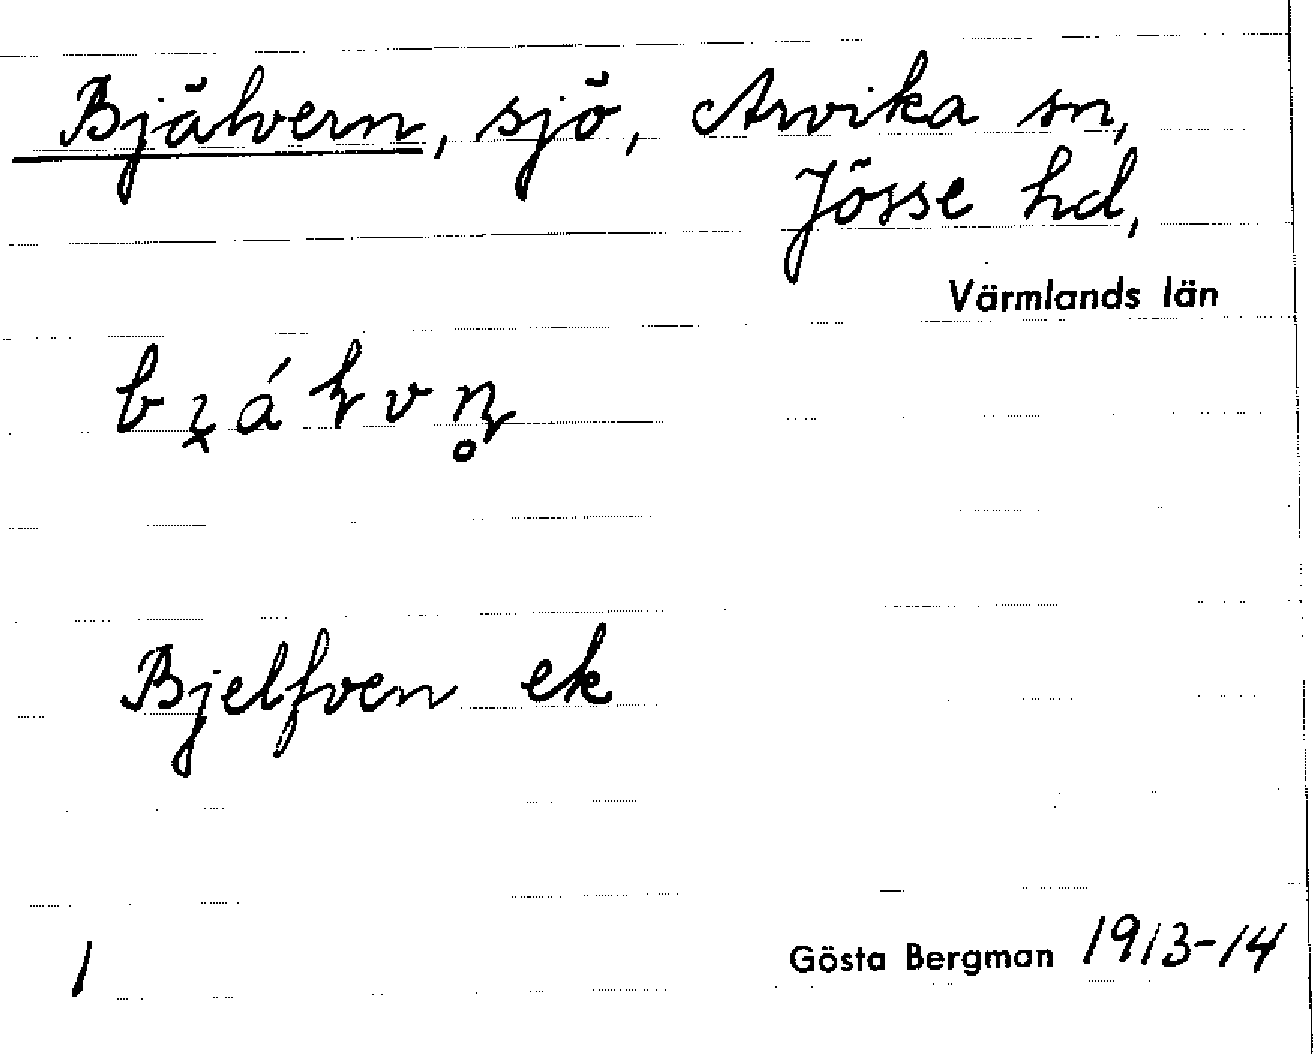 Bjälvern, sjö, Arvika sn,
Jösse hd,
Värmlands län
Bjelfven ek
1
Gösta Bergman 1913-14